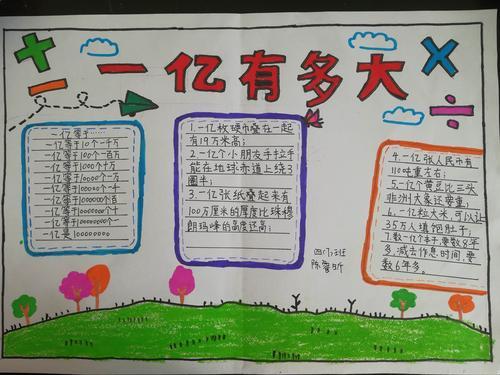 一亿有多大
一亿等于……
一亿等于10个一千万
一亿等于100个一百万
一亿等于1000个十万
一亿等于10000个一万
一亿等于100000个一千
一亿等于1000000个一百
一亿等于10000000个十
一亿等于100000000个一
一亿是100000000
1.一亿枚硬币叠在一起
有19万米高;
2.一亿个小朋友手拉手
能在地球赤道上绕3
圈半;
3.一亿张纸叠起来有
100万厘米的厚度比珠穆
朗玛峰的高度还高;
四(1)班
陈馨昕
4.一亿张人民币有
110吨重左右;
5.一亿个黄豆比三头
非洲大象还要重;
6.一亿粒大米,可以让
35万人填饱肚子;
7.数一亿个本子,要数8年
多,减去作息时间,要
数6年多。